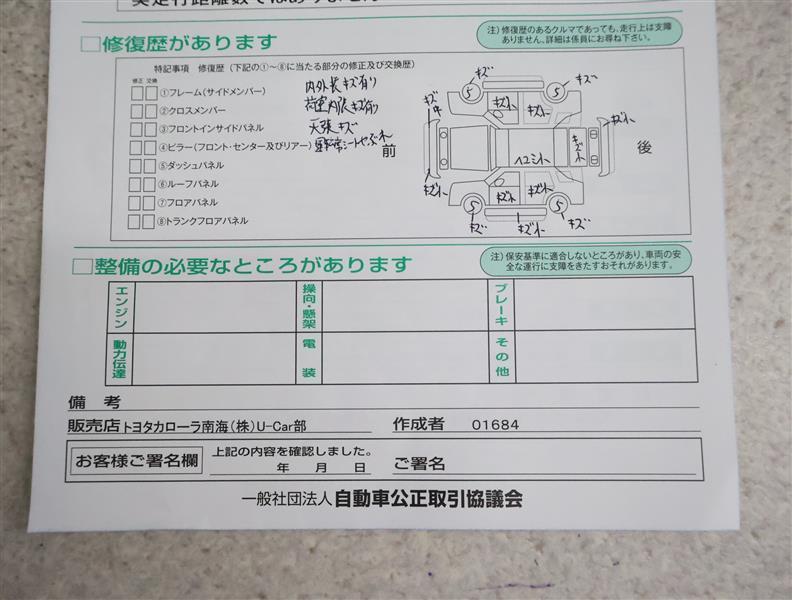 □修復歴があります
注）修復歴のあるクルマであっても、走行上は支障
ありません、詳細は係員にお尋ね下さい。
特記事項 修復歴（下記の①～⑧に当たる部分の修正及び交換歴）
修正 交換
①フレーム(サイドメンバー)
②クロスメンバー
③フロントインサイドパネル
④ピラー(フロント・センター及びリアー)
⑤ダッシュパネル
⑥ルーフパネル
⑦フロアパネル
⑧トランクフロアパネル
内外装キズ有り
荷室内張キズ有り
天張キズ
前
後
キズ
キズ
5
5
キズ小
キズ小
キズ小
ヘコミ小
キズ小
キズ小
キズ小
キズ小
5
5
キズ
キズ小
キズ
□整備の必要なところがあります
注）保安基準に適合しないところがあり、車両の安
全な運行に支障をきたすおそれがあります。
エンジン
操向・懸架
ブレーキ
動力伝達
電装
その他
備考
販売店 トヨタカローラ南海(株)U-Car部
作成者 01684
お客様ご署名欄
上記の内容を確認しました。
年 月 日
ご署名
一般社団法人 自動車公正取引協議会